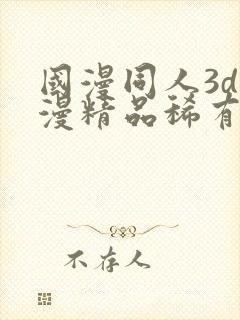 國漫同人3d
漫精品稀有
不存人